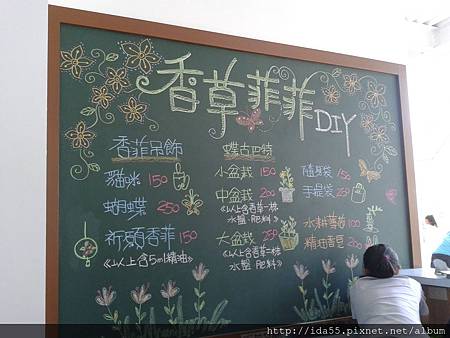 香草菲菲
DIY
香菲吊飾
貓咪 150
蝴蝶 250
祈願香菲 150
《以上含5ml精油》
蝶古巴特
小盆栽 150
中盆栽 200
《以上含香草一株
水盤 肥料》
大盆栽 250
《以上含香草二株
水盤 肥料》
隨身袋 150
手提袋 250
水耕 100
精油香皂 200
http://ida55.pixnet.net/album